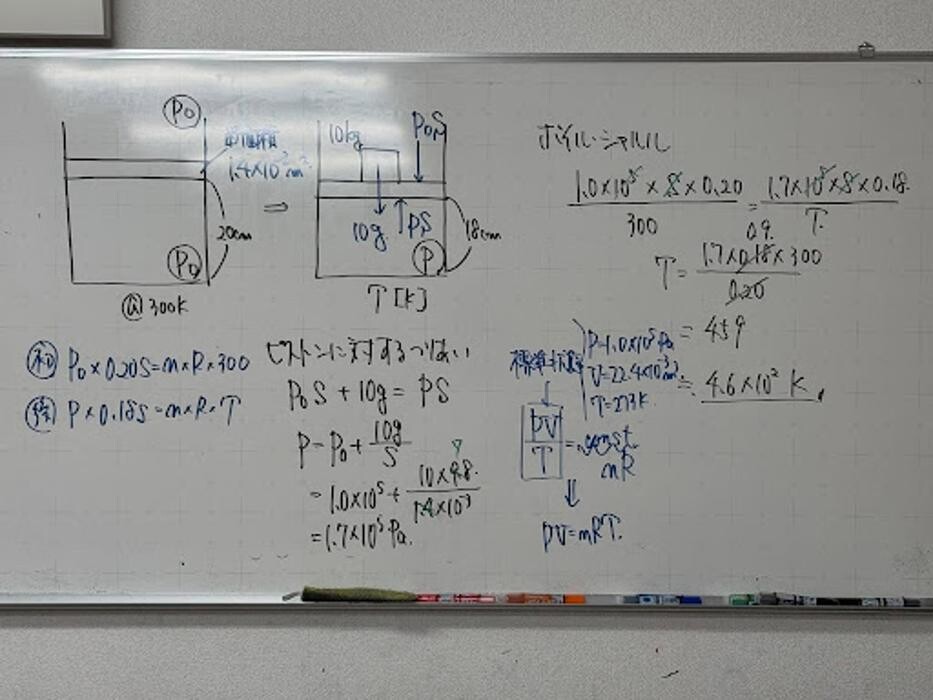 P₀
断面積
1.4×10⁻³m².
20cm
P₀
@300K
⇒
10kg
P₀S
10g
PS
18cm
P
T[K]
初 P₀×0.20S=n×R×300
後 P×0.18S=n×R×T
ピストンに対するつりあい
P₀S + 10g = PS
P = P₀ + 10g/S
= 1.0×10⁵ + 10×9.8/1.4×10⁻³
7
= 1.7×10⁵ Pa.
ボイル・シャルル
1.0×10⁵×S×0.20/300 = 1.7×10⁵×S×0.18/T.
0.9
T = 1.7×0.18×300/0.20
= 459
≒ 4.6×10² K,
標準状態
P=1.0×10⁵Pa
V=22.4×10⁻³m³
T=273K.
PV/T = const.
nR
⇓
PV=nRT.